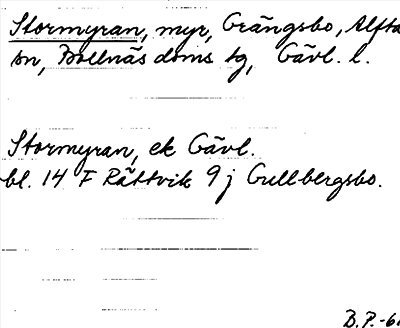 Stormyran, myr, Grängsbo, Alfta
sn, Bollnäs doms tg, Gävl. l.
Stormyran, ek Gävl.
bl. 14 F Rättvik 9 j Gullbergsbo.
B.P.-6